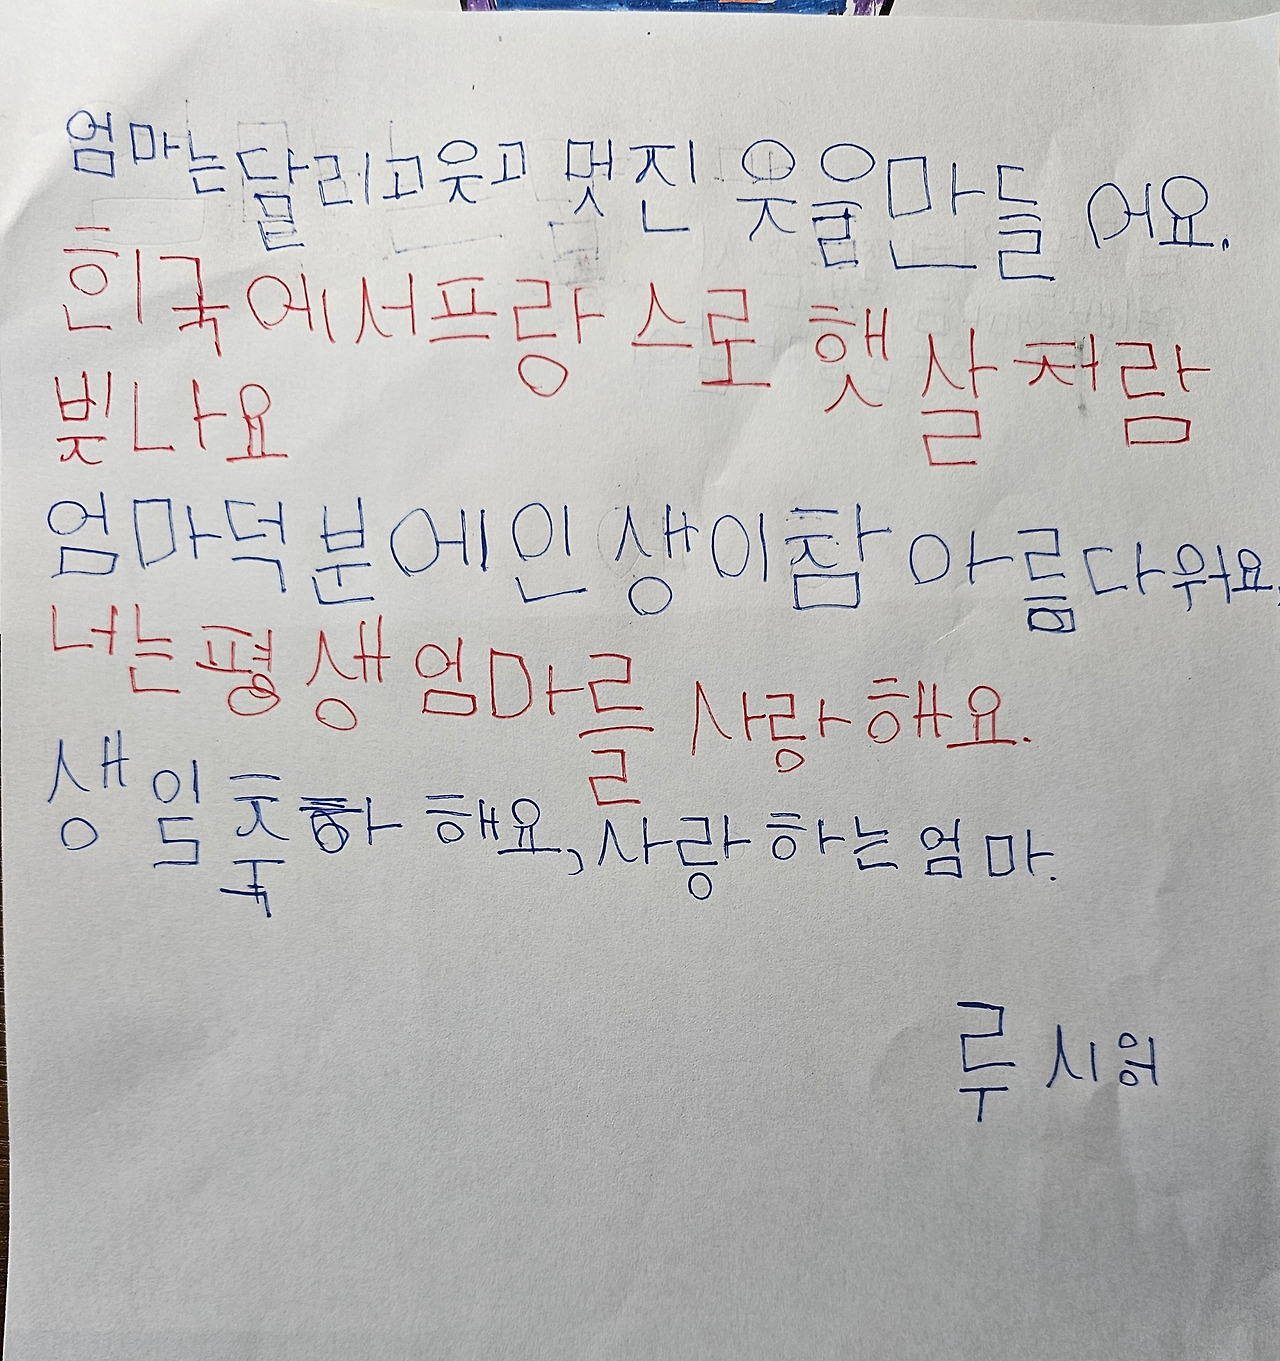 엄마는달리고웃고 멋진 옷을만들 어요.
힌국에서프랑 스로 햇 살 처람
빛나요
엄마덕 분에인 생이참 아름다워요.
너는평 생엄마를 사랑해요.
생 일 축하 해요, 사랑하는엄마.
루 시어